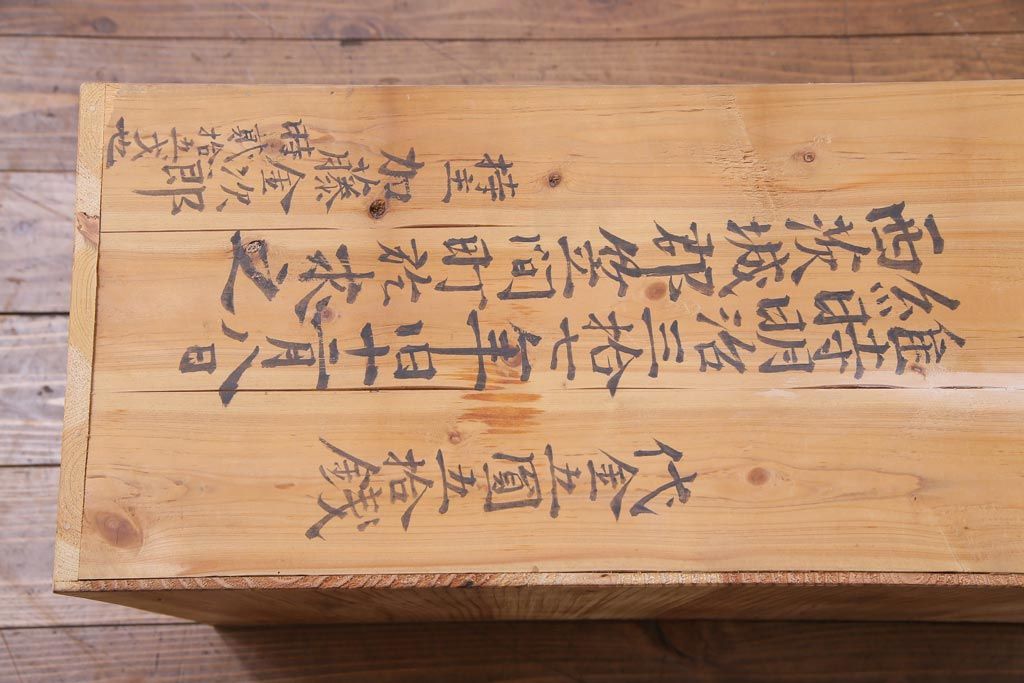 代金五圓五拾銭
維時明治三拾七年旧十一月八日
西茨城郡笠間町於求之
持主
加藤金次郎
時貳拾五才也